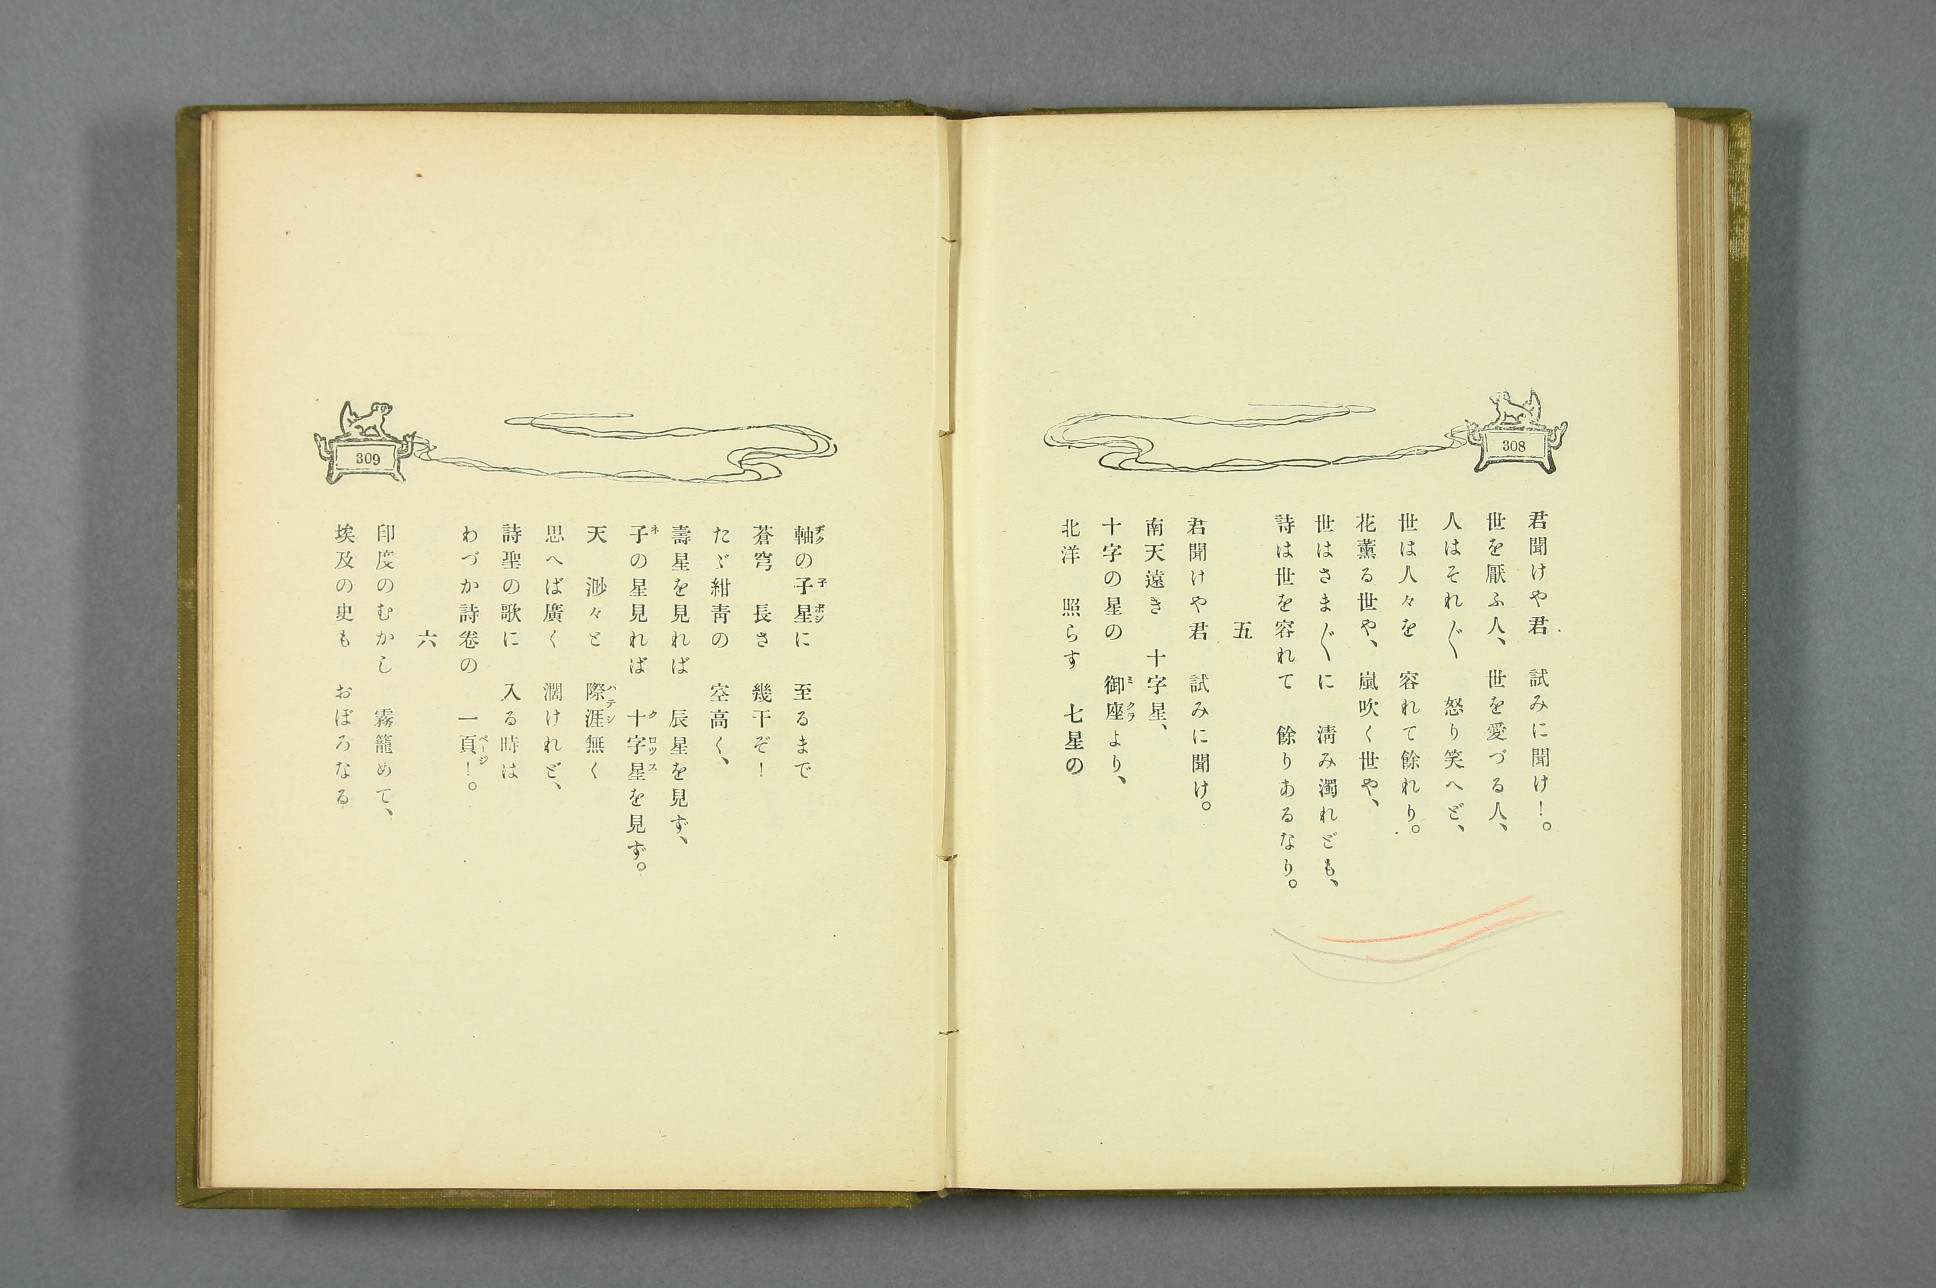 308
君聞けや君　試みに聞け！。
世を厭ふ人、世を愛づる人、
人はそれ〴〵　怒り笑へど、
世は人々を　容れて餘れり。
花薫る世や、嵐吹く世や、
世はさま〴〵に　淸み濁れども、
詩は世を容れて　餘りあるなり。
五
君聞けや君　試みに聞け。
南天遠き　十字星、
十字の星の　御座より、
北洋　照らす　七星の
309
軸の子星に　至るまで
蒼穹　長さ　幾千ぞ！
たゞ紺靑の　空高く、
壽星を見れば　辰星を見ず、
子の星見れば　十字星を見ず。
天　渺々と　際涯無く
思へば廣く　濶けれど、
詩聖の歌に　入る時は
わづか詩卷の　一頁！。
六
印度のむかし　霧籠めて、
埃及の史も　おぼろなる